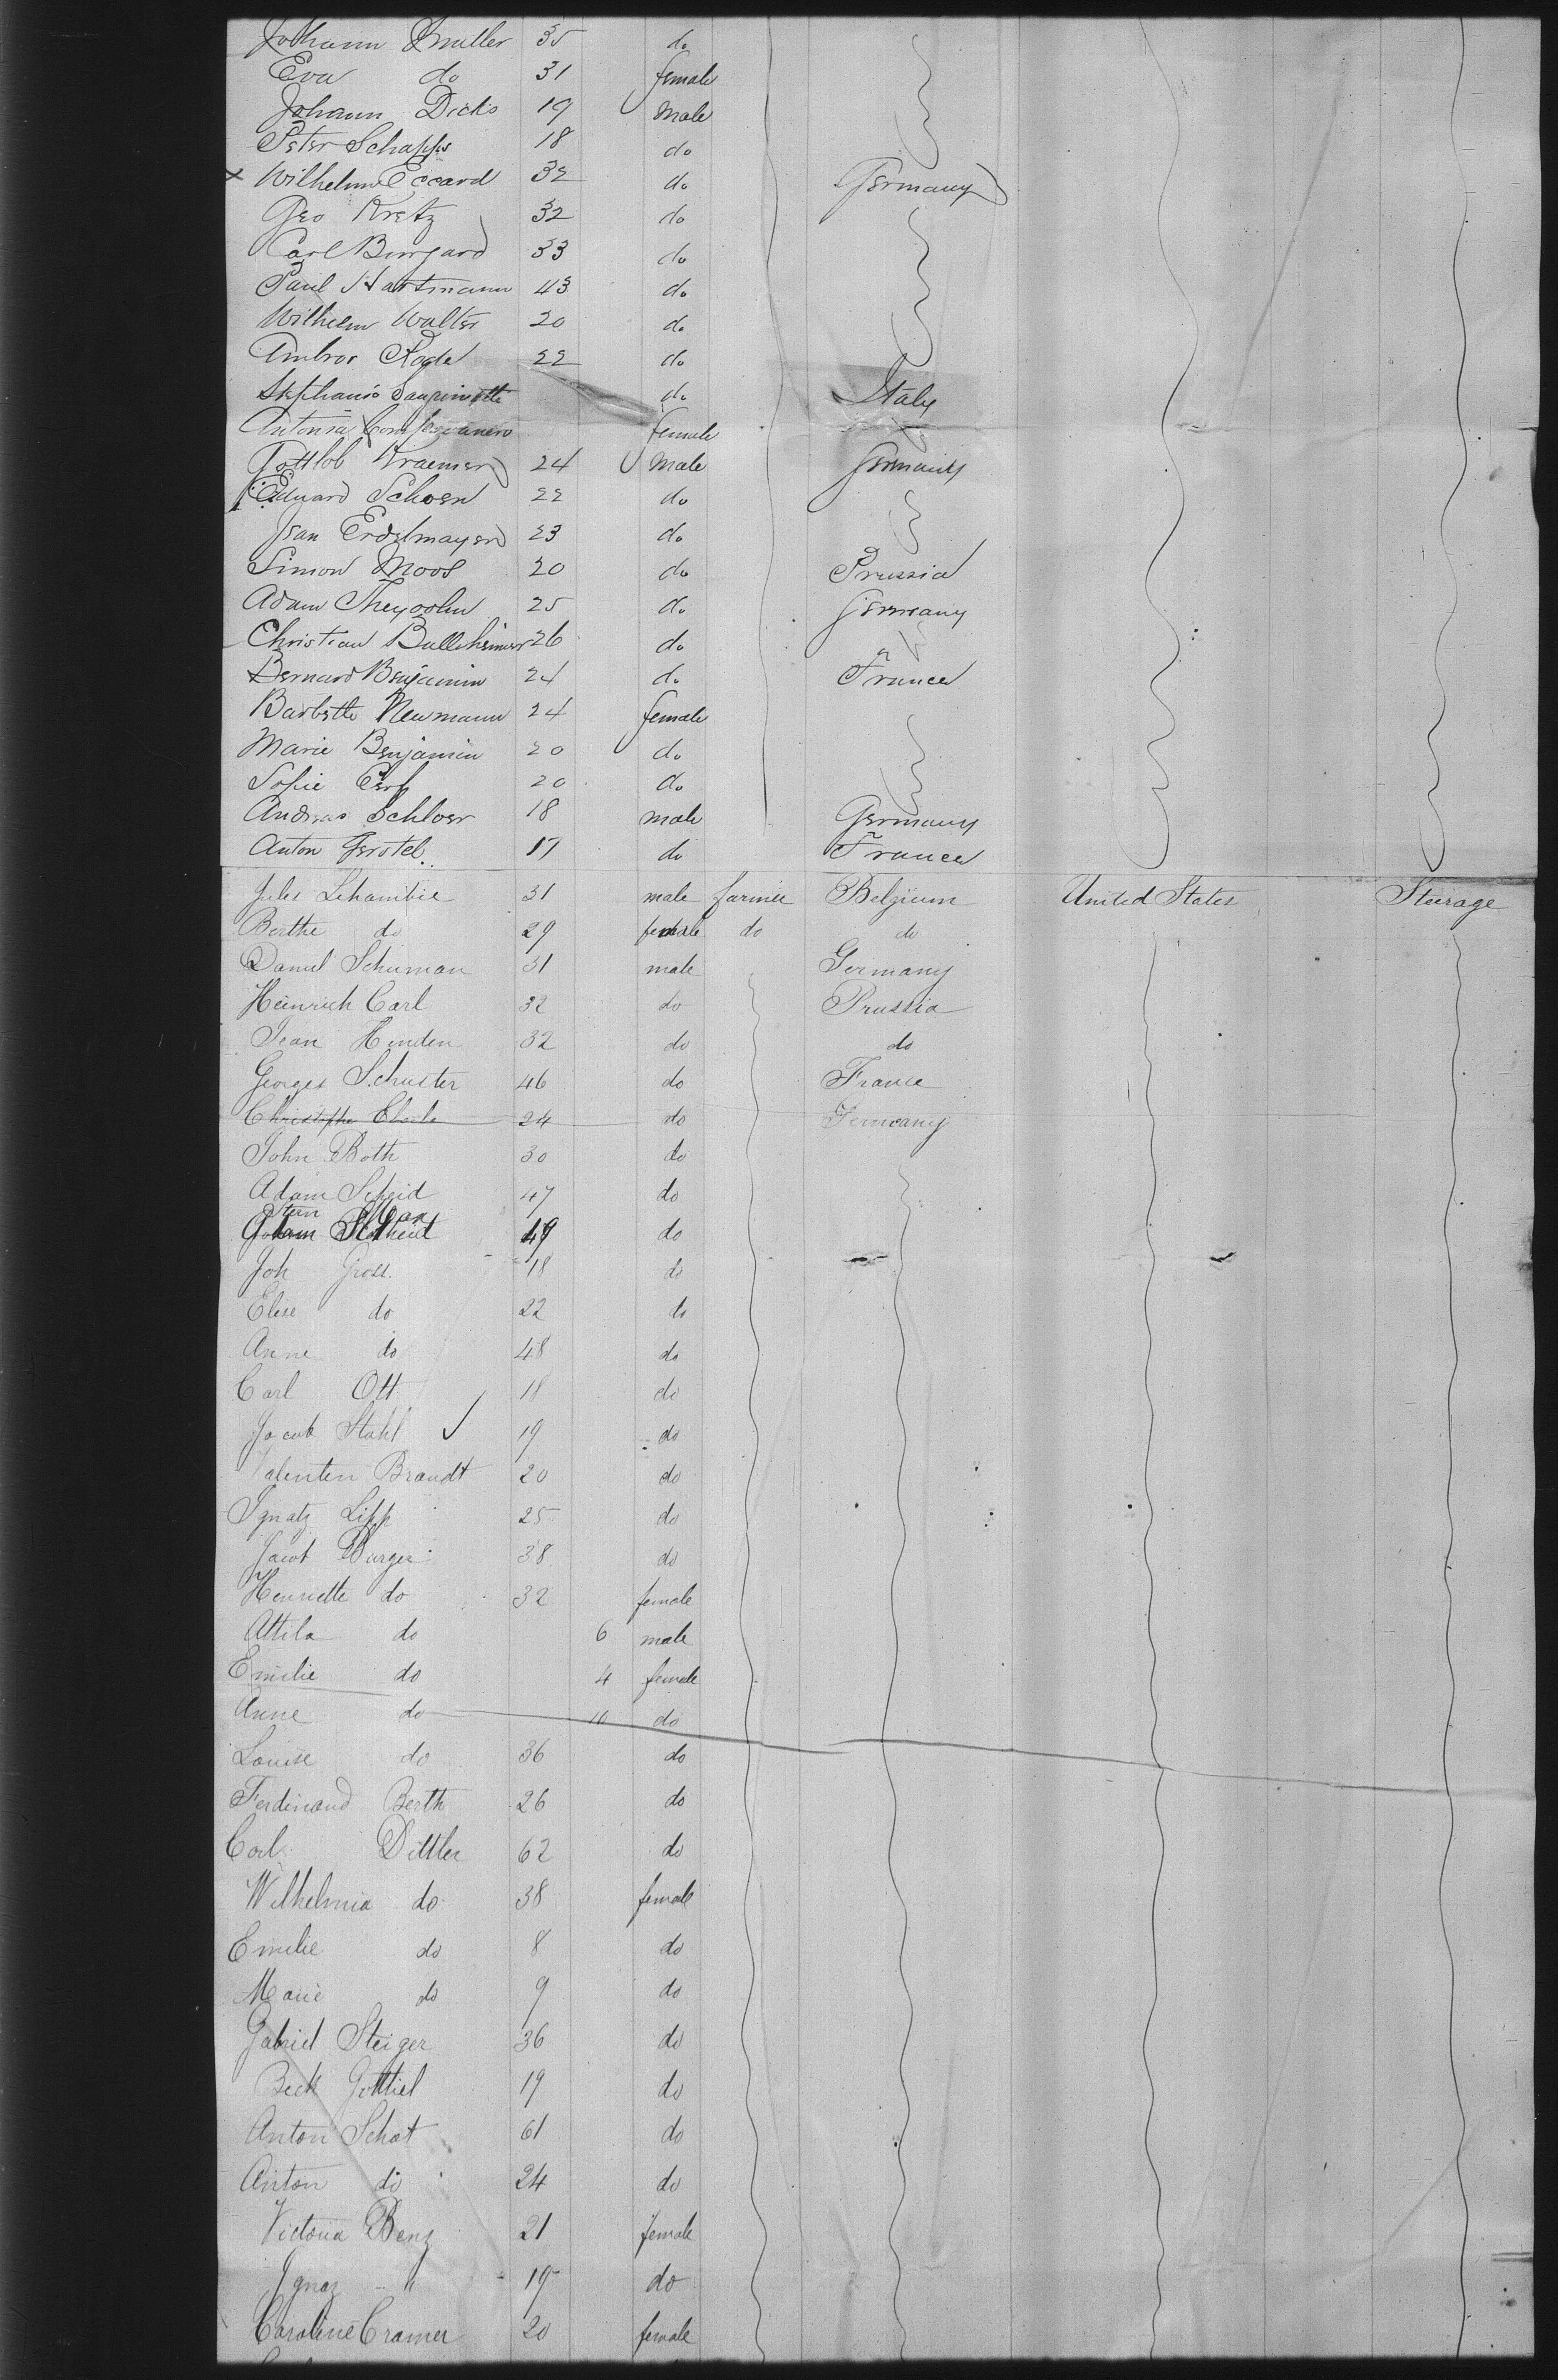 Johann Muller 35 do
Eva do 31 female
Johann Dicks 19 male
Peter Schapps 18 do
x Wilhelm Eccard 32 do Germany
Geo Kretz 32 do
Carl Burgard 33 do
Paul Hartmann 43 do
Wilhelm Walter 20 do
Ambros Rode 22 do
Stephanio do Italy
Antonia female
Gottlob Kraemer 24 male Germany
Eduard Schoen 22 do
Jean Erdelmayer 23 do
Simon Moos 20 do Prussia
Adam Theysohn 25 do Germany
Christian Bullehimer 26 do
Bernard Benjamin 24 do France
Barbette Neumann 24 female
Marie Benjamin 20 do
Sofie Cerf 20 do
Andreas Schloer 18 male Germany
Anton Gerstel 17 do France
Jules Lehambie 31 male farmer Belgium United States Steerage
Berthe do 29 female do do
Daniel Schuman 31 male Germany
Heinrich Carl 32 do Prussia
Jean Hinden 32 do do
Georges Schuster 46 do France
Christophe Eberle 24 do Germany
John Both 30 do
Adam Scheid 47 do
Stein Max
49 do
Joh Gross 18 do
Elise do 22 do
Anne do 48 do
Carl Ott 18 do
Jacob Stahl ✓ 19 do
Valentin Brandt 20 do
Ignatz Lipp 25 do
Jacob Burger 38 do
Henriette do 32 female
Attila do 6 male
Emilie do 4 female
Anne do 10 do
Louise do 36 do
Ferdinand Berth 26 do
Carl Dittler 62 do
Wilhelmia do 38 female
Emilie do 8 do
Marie do 9 do
Gabriel Steiger 36 do
Beck Gottlieb 19 do
Anton Schat 61 do
Anton do 24 do
Victoria Benz 21 female
Ignaz " 19 do
Caroline Cramer 20 female